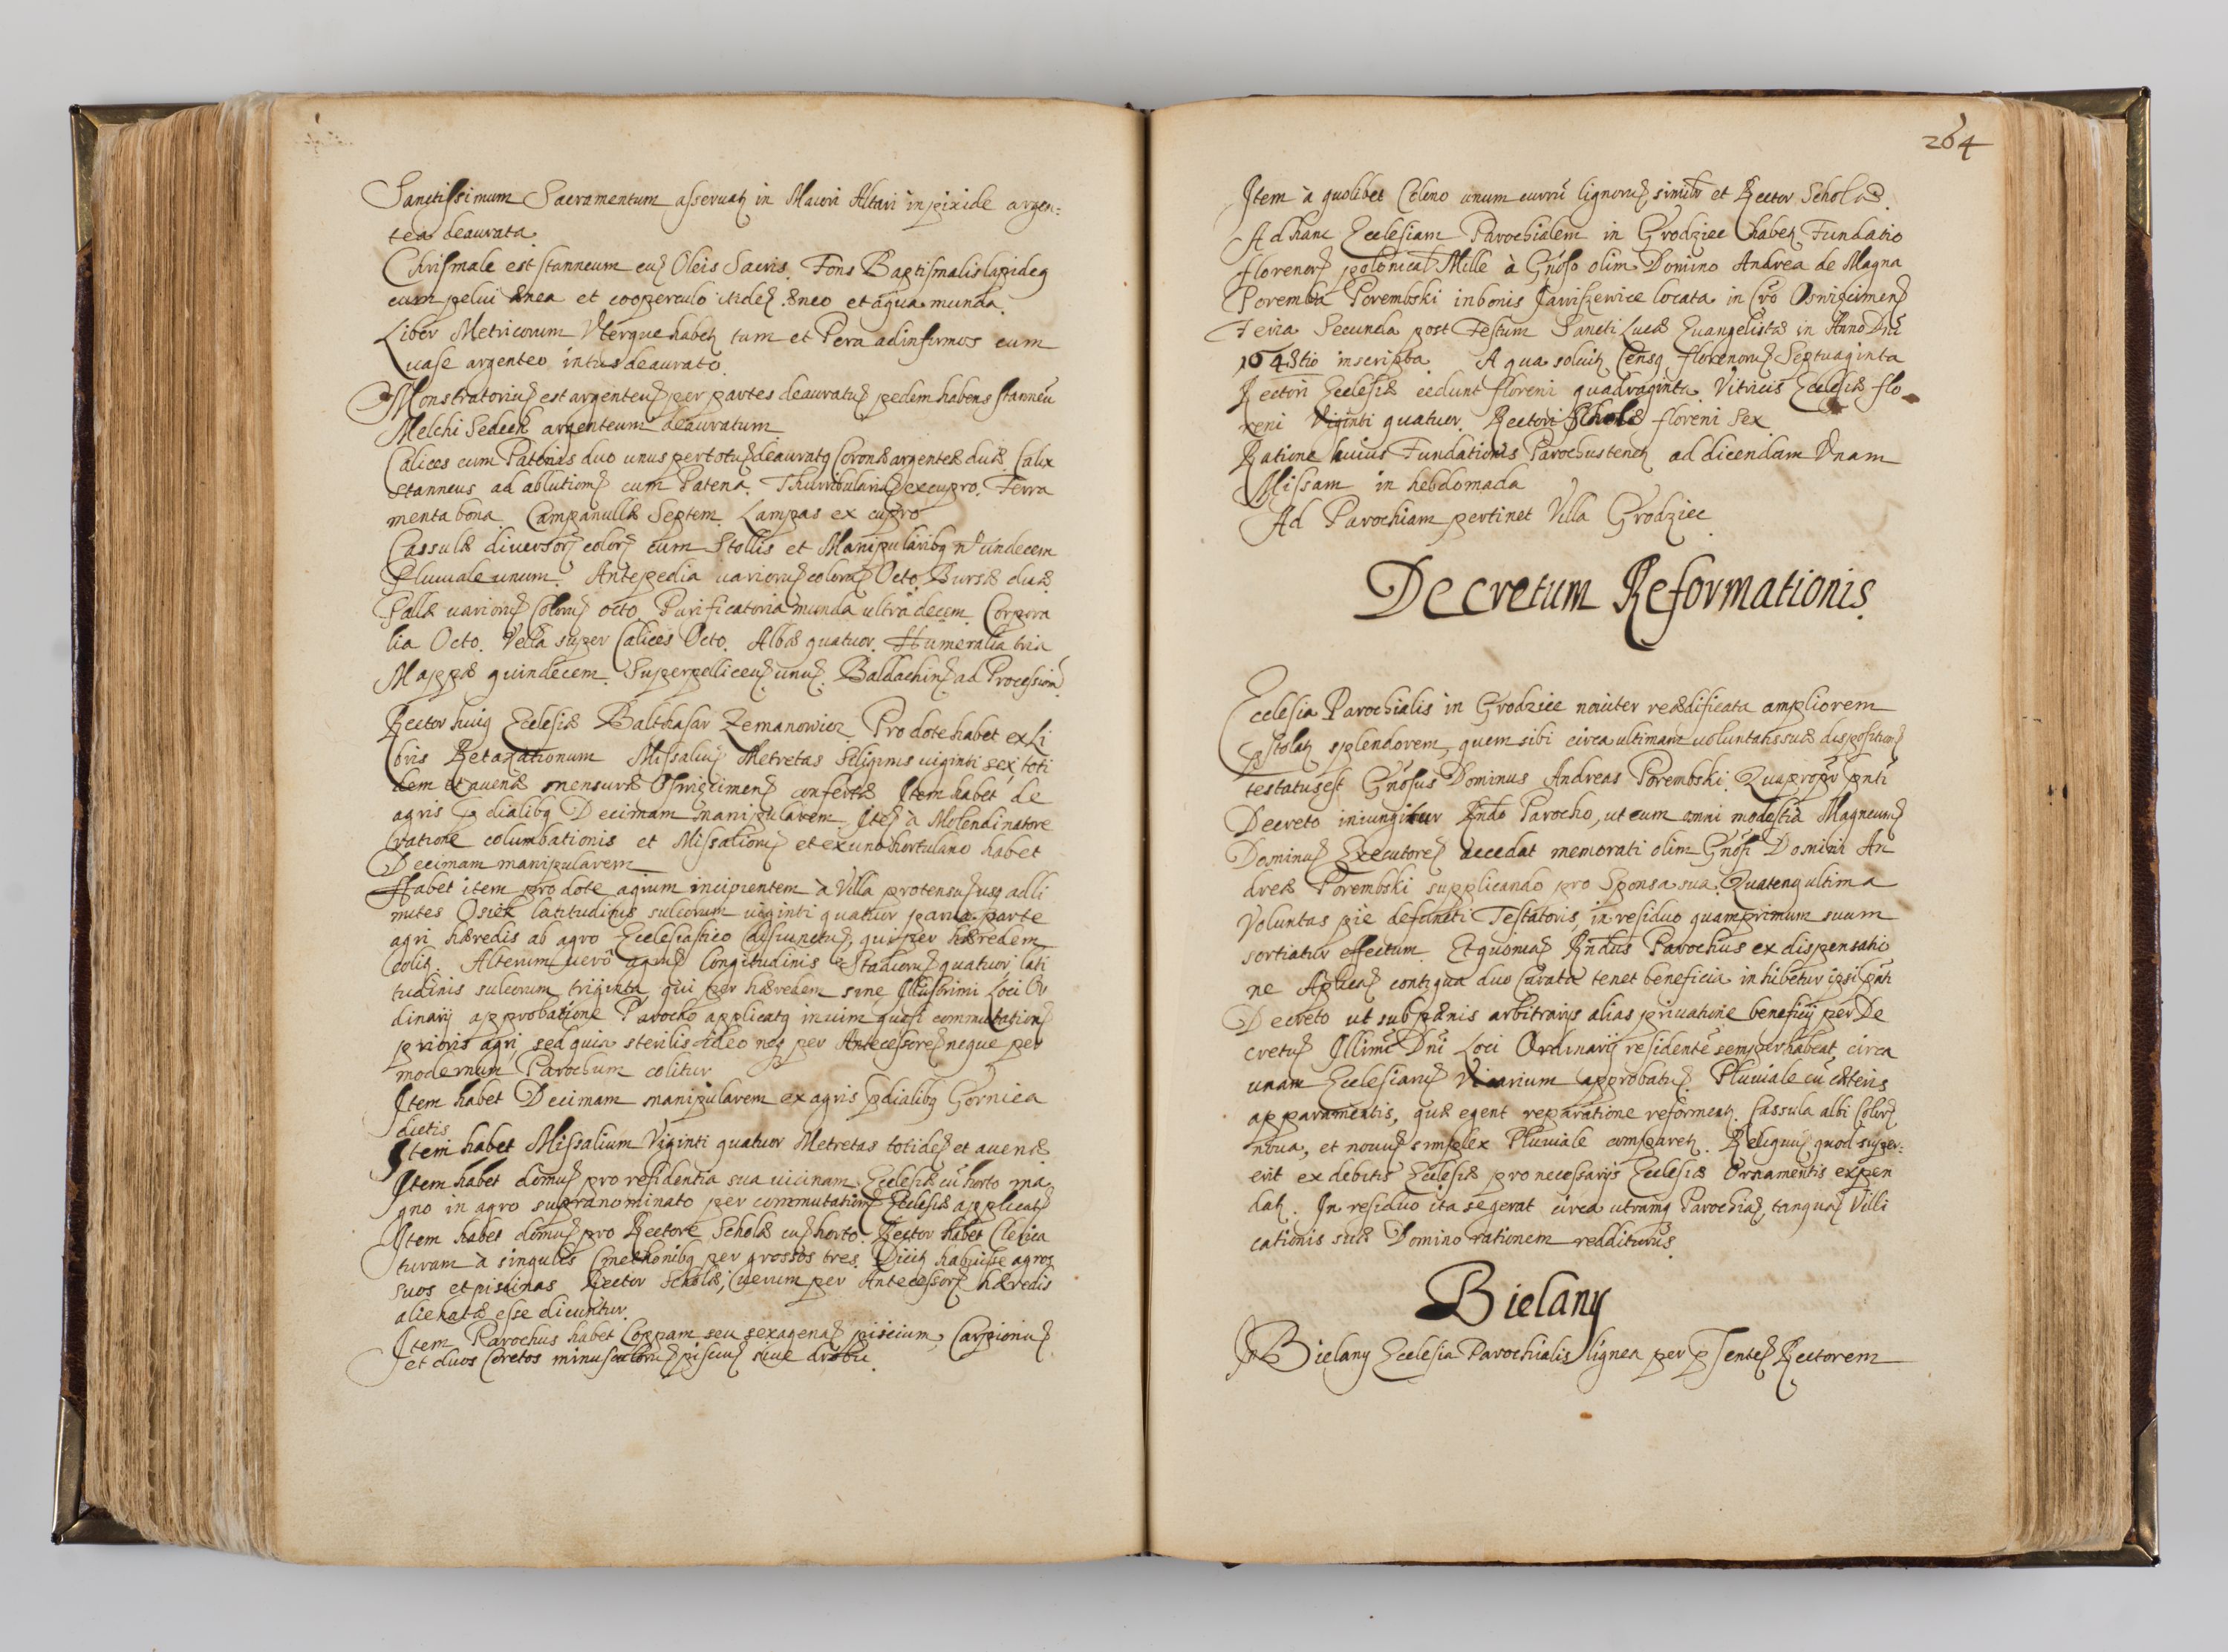 Sanctissimum Sacramentum asseruatꝫ in Maiori Altari in pixide argen:
tea deaurata.
Chrismale est stanneum cuꝫ Oleis Sacris. Fons Baptismalis lapideꝯ
cum pelui ænea et cooperculo itideꝫ æneo et aqua munda.
Liber Metricorum Vterque habetꝫ tum et Pera ad infirmos cum
vase argenteo intus deaurato.
Monstratoriuꝫ est argenteuꝫ per partes deauratuꝫ pedem habens stanneū
Melchi Sedech argenteum deauratum
Calices cum Patenis duo unus per totuꝫ deauratꝯ Coronæ argenteæ duæ. Calix
stanneus ad ablutionꝫ cum Patena. Thurribulariuꝫ ex cupro. Ferra
menta bona. Campanullæ Septem. Lampas ex cupro
Cassulæ diuersorꝫ colorꝫ cum Stollis et Manipularibꝯ nº undecem
Pluuiale unum. Antepedia uarioruꝫ coloruꝫ Octo. Bursæ duæ.
Pallæ uarioruꝫ Coloruꝫ octo. Purificatoria munda ultra decem. Corpora
lia Octo. Vella super Calices Octo. Albæ quatuor. Humeralia tria
Mappæ quindecem. Superpelliceuꝫ unuꝫ. Baldachinꝫ ad Processionꝫ
Rector huiꝯ Ecclesiæ Balthasar Zemanowicz. Pro dote habet ex Li
bris Retaxationum Missaliuꝫ Metretas Siliginis uiginti sex toti
dem et auenæ mensuræ Osvieciminꝫ confertæ Item habet de
agris p̃dialibꝯ Decimam manipularem. Iteꝫ à Molendinatore
ratione columbationis et Missalioruꝫ et ex uno hortulano habet
Decimam manipularem
Habet item pro dote agrum incipientem à Villa protensuꝫ usqꝫ ad li
mites Osiek latitudinis sulcorum uiginti quatuor parua parte
agri hæredis ab agro Ecclesiastico disiunctuꝫ, qui per hæredem
colitꝫ. Alterum uerò agruꝫ longitudinis Stadioruꝫ quatuor, lati
tudinis sulcorum triginta qui per hæredem sine Illustrimi Loci Or
dinarij approbatione Parocho applicatꝯ in uim quasi commutationꝫ
prioris agri, sed quia sterilis ideo neqꝫ per Antecessoreꝫ neque per
modernum Parochum colitur
Item habet Decimam manipularem ex agris p̃dialibꝯ Gornica
dictis
Item habet Missalium Viginti quatuor Metretas totideꝫ et auenæ
Item habet domuꝫ pro residentia sua uicinam Ecclesiæ cū horto ma
gno in agro supranominato per commutationꝫ Ecclesiæ applicatꝫ
Item habet domuꝫ pro Rectore Scholæ cuꝫ horto. Rector habet Clerica
turam à singulis Cmethonibꝯ per grossos tres. Dicitꝫ habuisse agros
suos et piscinas Rector Scholæ, uerum per Antecessorꝫ hæredis
alienatæ esse dicuntur.
Item Parochus habet Coppam seu sexagenaꝫ piscium, Carpionuꝫ
et duos Coretos minusculoruꝫ pisciuꝫ siue drobiu.
264
Item à quolibet Coleno unum currū lignoruꝫ, similr et Rector Scholæ.
Ad hanc Ecclesiam Parochialem in Grodziec habetꝫ Fundatio
florenorꝫ polonical Mille à Gnōso olim Domino Andrea de Magna
Poremba Porembski in bonis Jawiszewice locata in Cro Osviecimenꝫ
Feria Secunda post Festum Sancti Lucæ Euangelistæ in Anno Dni
1648tio inscripta. A qua soluitꝫ Censꝯ florenoruꝫ Septuaginta
Rectori Ecclesiæ cedunt floreni quadraginta. Vitricis Ecclesiæ flo
reni Viginti quatuor. Rectori Scholæ floreni Sex
Ratione huius Fundationis Parochus tenetꝫ ad dicendam Vnam
Missam in hebdomada
Ad Parochiam pertinet Villa Grodziec
Decretum Reformationis
Ecclesia Parochialis in Grodziec nouiter reædificata ampliorem
p̃stolatꝫ splendorem, quem sibi circa ultimam uoluntatis suæ dispositionꝫ
testatus est Gnōsus Dominus Andreas Porembski. Quapropr̄ pnti
Decreto iniungitur Rndo Parocho, ut cum omni modestia Magneumꝫ
Dominuꝫ Executoreꝫ accedat memorati olim Gnōsi Domini An
dreæ Porembski supplicando pro Sponsa sua. Quatenꝯ ultima
Voluntas pie defuncti Testatoris, in residuo quamprimum suum
sortiatur effectum. Et quoniaꝫ Rndus Parochus ex dispensatio
ne Aplicaꝫ contigua duo Curata tenet beneficia inhibetur ipsi pnti
Decreto ut sub pænis arbitrarijs alias priuatione beneficij per De
cretuꝫ Illimi Dni Loci Ordinarij residentē semper habeat circa
unam Ecclesiaruꝫ Vicarium approbatuꝫ. Pluuiale cū cæteris
apparamentis, quæ egent reparatione reformentꝫ. Cassula albi Colorꝫ
noua, et nouuꝫ simplex Pluuiale comparetꝫ. Reliquuꝫ quod super:
erit ex debitis Ecclesiæ pro necessarijs Ecclesiæ Ornamentis expen
datꝫ. In residuo ita se gerat circa utramqꝫ Parochiaꝫ, tanquaꝫ Villi
cationis suæ Domino rationem redditurus.
Bielany
In Bielany Ecclesia Parochialis lignea per p̃senteꝫ Rectorem